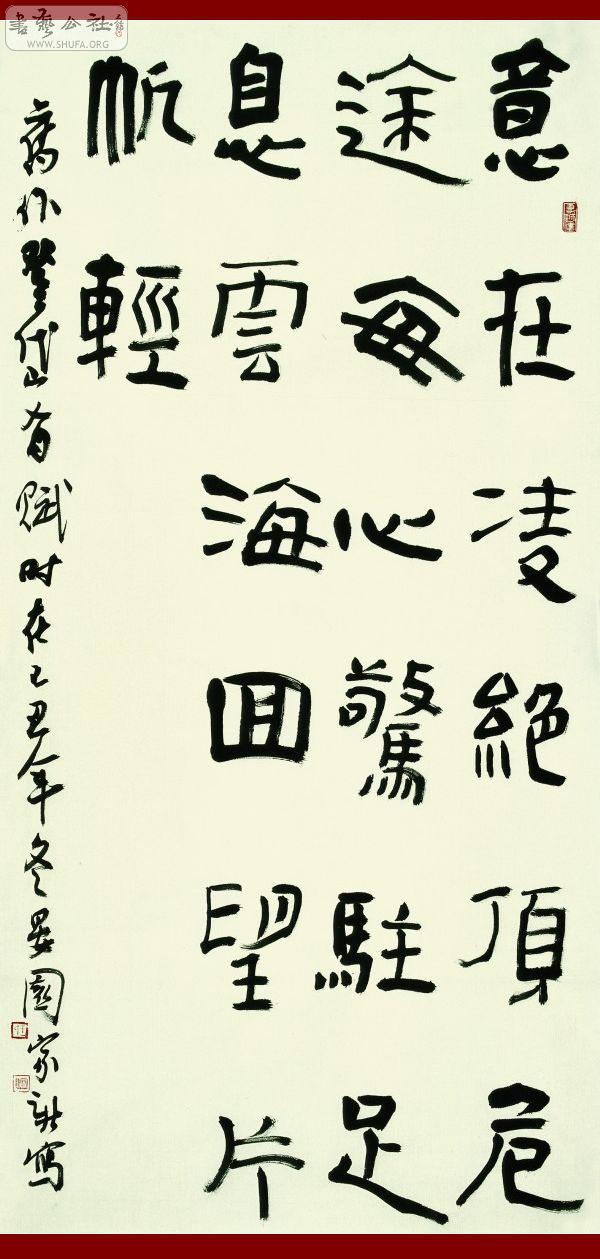 書藝公社
WWW.SHUFA.ORG
意在凌絕頂危
途每心驚駐足
息雲海回望片
帆輕
舊作登岱有賦时在己丑年冬園家寫